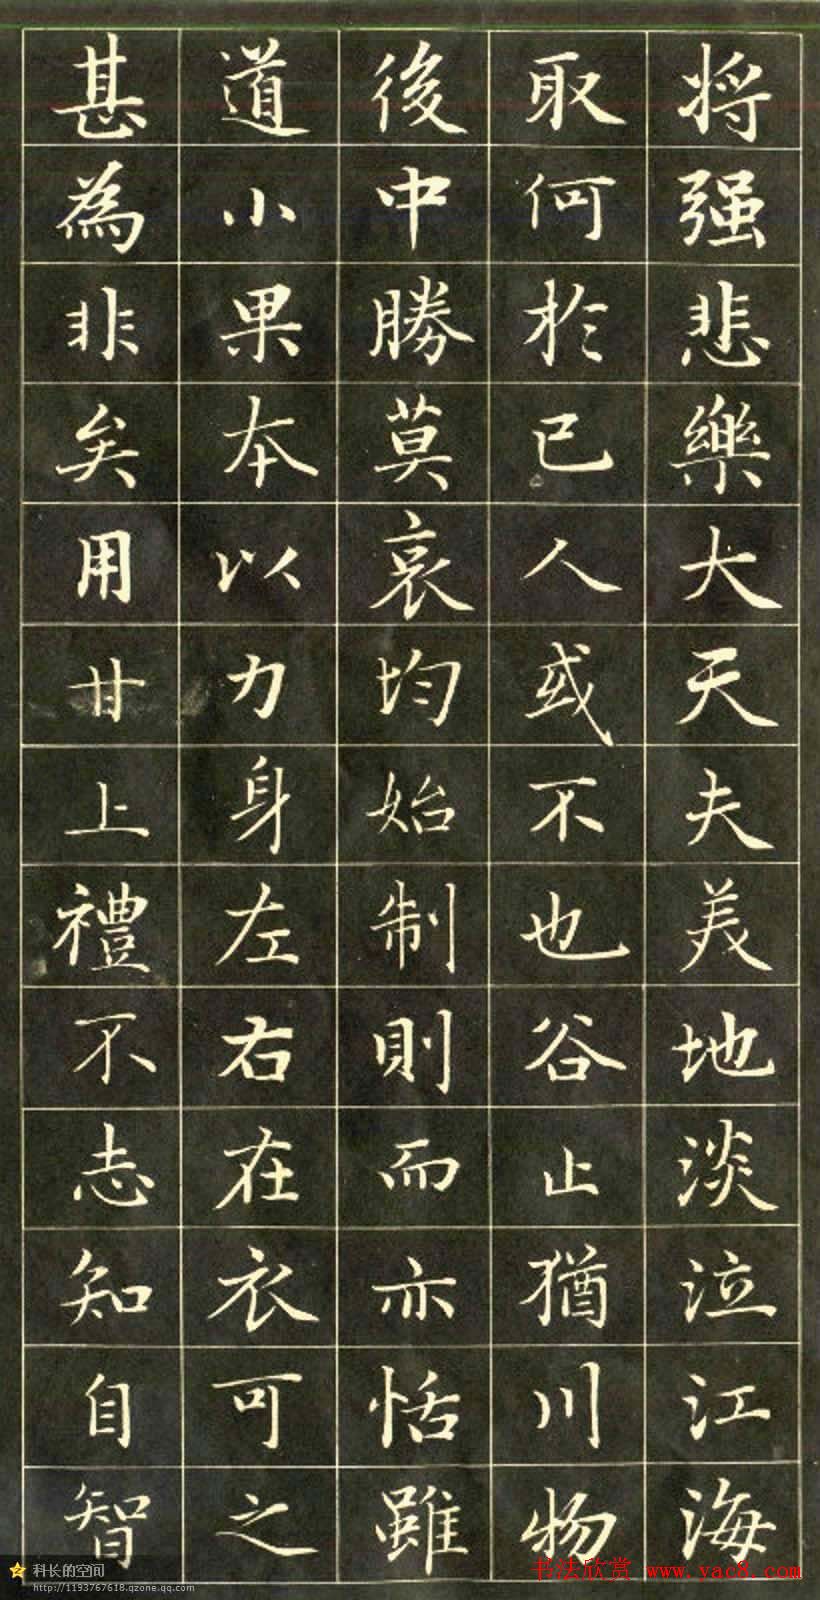 将强悲樂大天夫美地淡泣江海
取何於已人或不也谷止猶川物
後中勝莫哀均始制則而亦恬雖
道小果本以力身左右在衣可之
甚為非矣用甘上禮不志知自智
科长的空间
http://1193767618.qzone.qq.com
书法欣赏 www.yac8.com